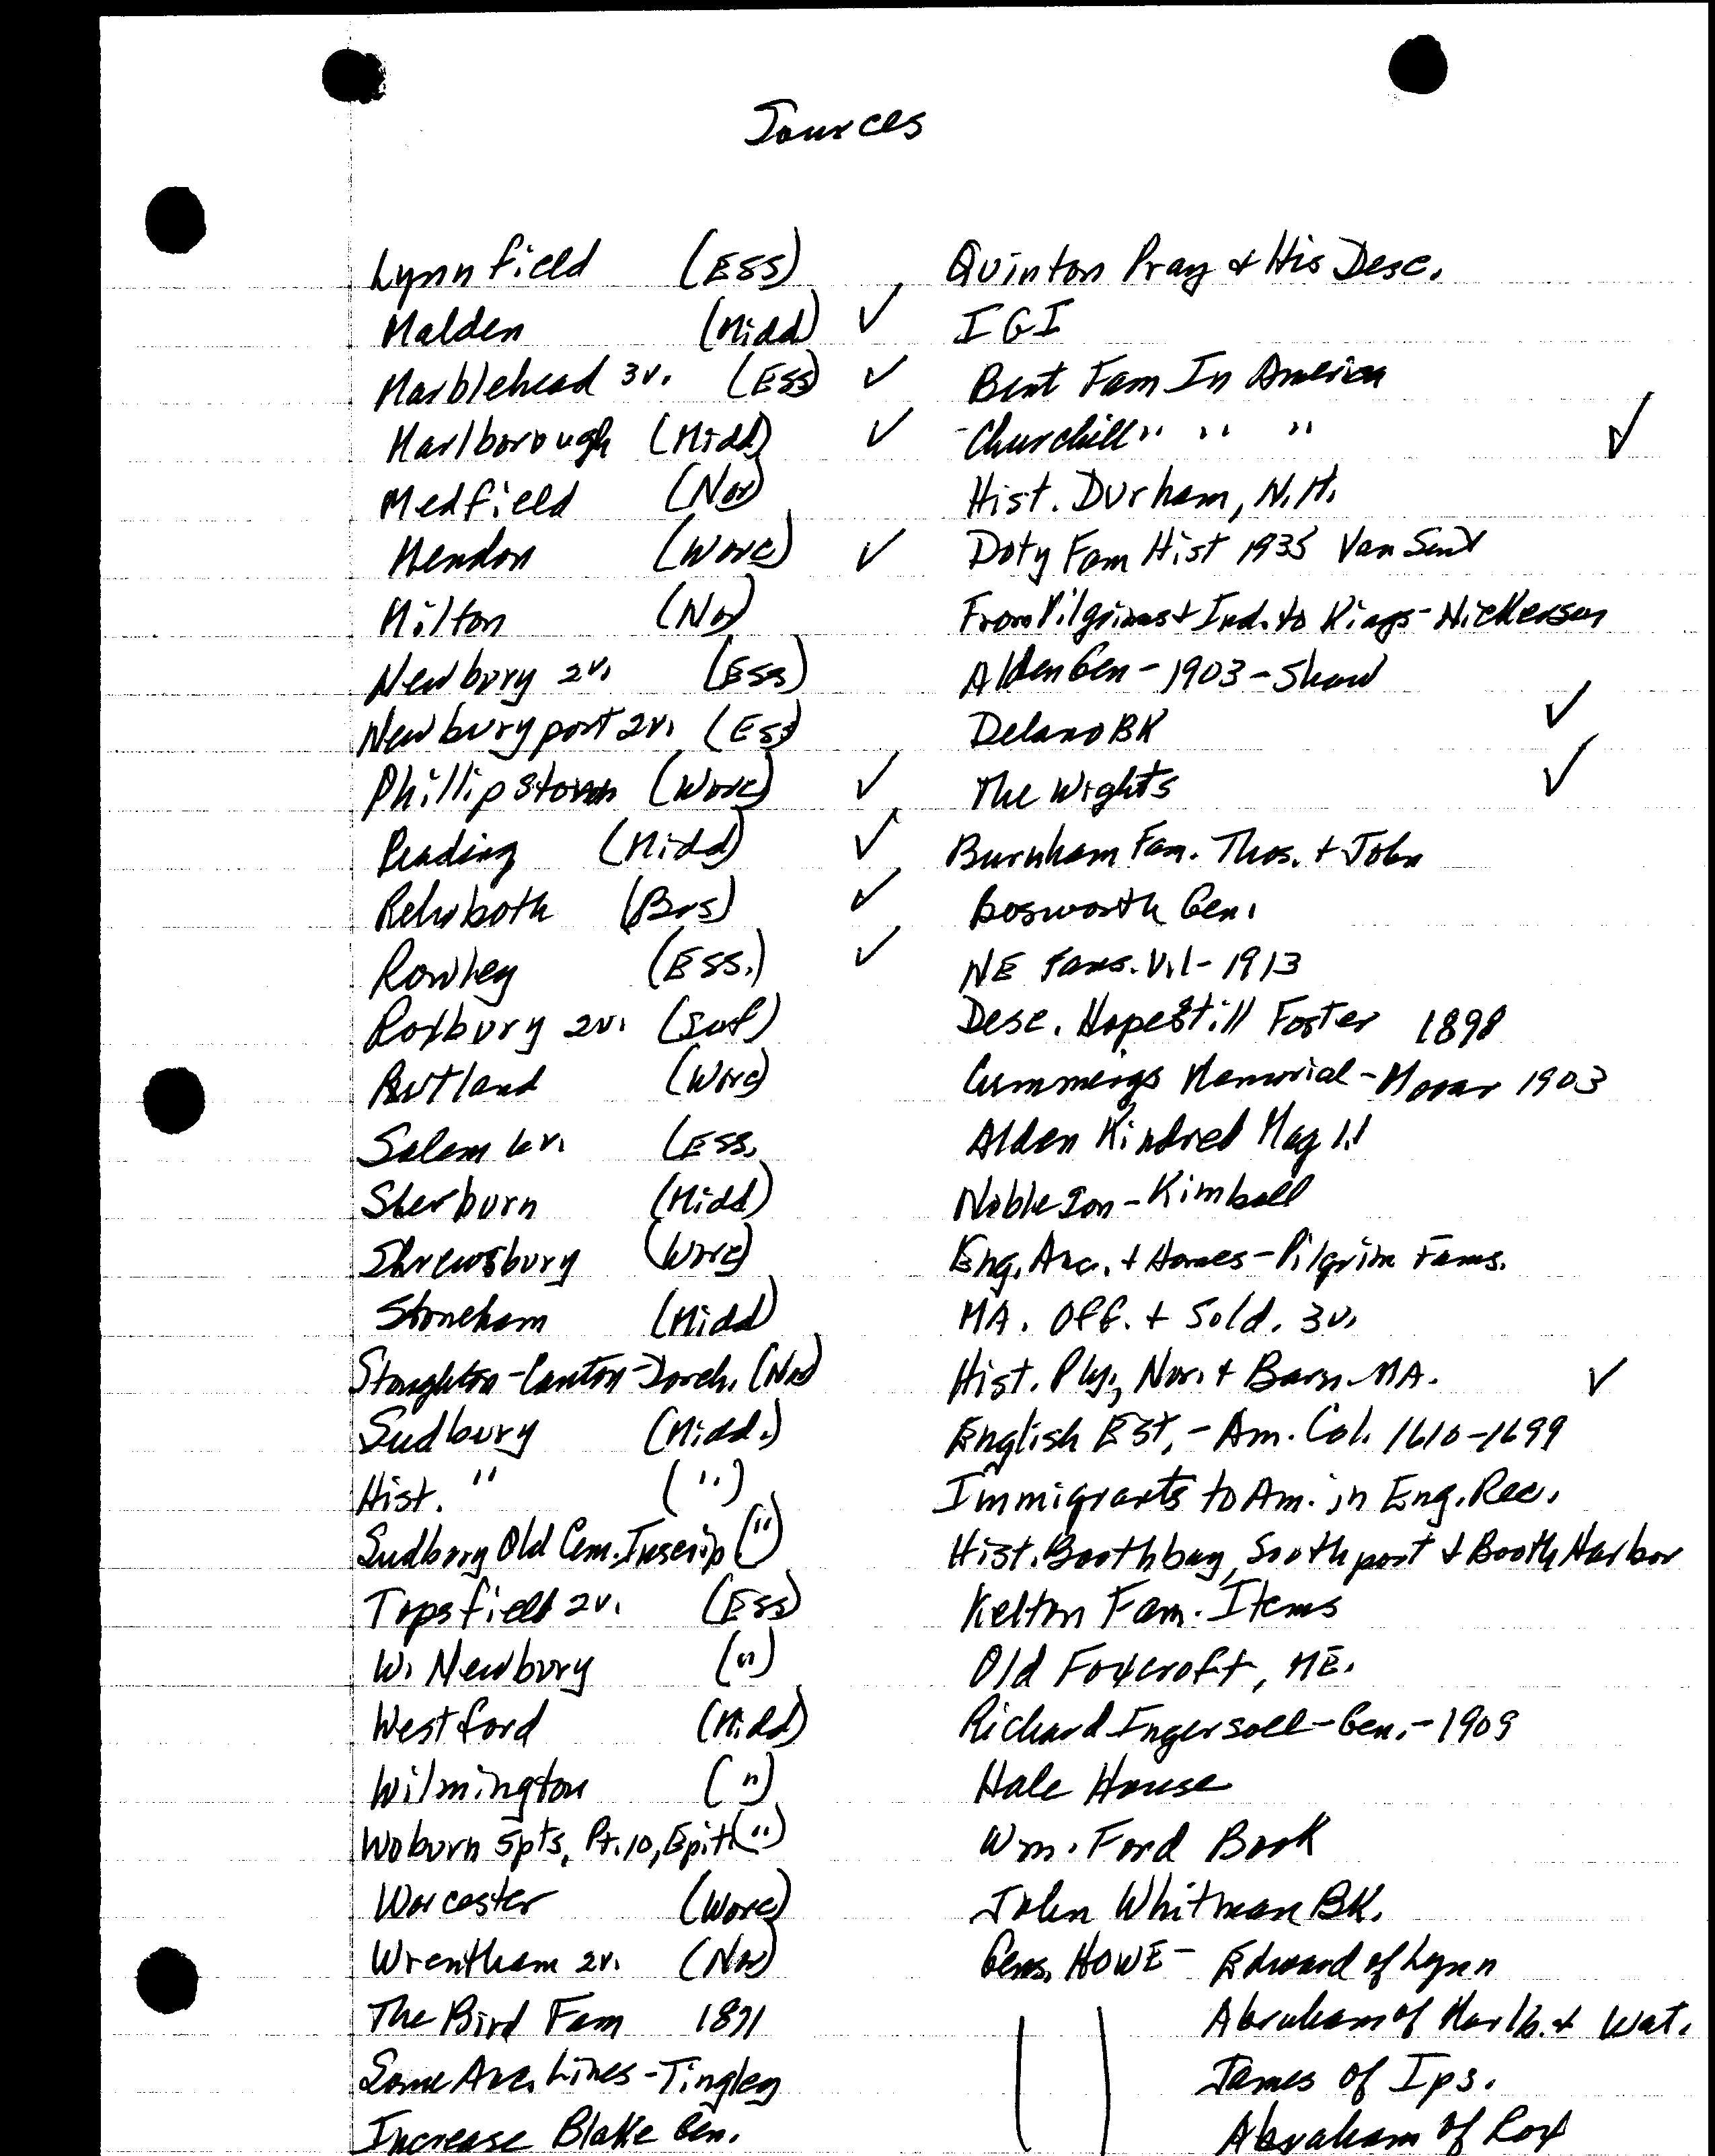 Sources
Lynnfield (Ess)
Malden (Midd) ✓
Marblehead 3v. (Ess) ✓
Marlborough (Midd) ✓
Medfield (Nor)
Mendon (Worc) ✓
Milton (Nor)
Newbury 2v. (Ess)
Newburyport 2v. (Ess)
Phillipston (Worc) ✓
Reading (Midd) ✓
Rehoboth (Brs) ✓
Rowley (Ess.) ✓
Roxbury 2v. (Suf)
Rutland (Worc)
Salem 6v. (Ess.
Sherburn (Midd)
Shrewsbury (Worc)
Stoneham (Midd)
Stoughton-Canton-Dorch. (Nor)
Sudbury (Midd.)
Hist. " (")
Sudbury Old Cem. Inscrip (")
Topsfield 2v. (Ess)
W. Newbury (")
Westford (Midd)
Wilmington (")
Woburn 5pts, Pt.10, Epit (")
Worcester (Worc)
Wrentham 2v. (Nor)
The Bird Fam 1871
Some Anc. Lines - Tingley
Increase Blake Gen.
Quinton Pray & His Desc.
IGI
Bent Fam In America
Churchill " " " ✓
Hist. Durham, N.H.
Doty Fam Hist 1935 Van
From Pilgrims & Ind. to Kings - Nickerson
Alden Gen - 1903 - Shaw
Delano BK ✓
The Wights ✓
Burnham Fam. Thos. & John
Bosworth Gen.
NE Fams. V.1 - 1913
Desc. Hopestill Foster 1898
Cummings Memorial - Mooar 1903
Alden Kindred Mag
Nobleson - Kimball
Eng. Anc. & Homes - Pilgrim Fams.
MA. Off. & Sold. 3v.
Hist. Ply., Nor. & Barn. MA. ✓
English Est. - Am. Col. 1610-1699
Immigrants to Am. in Eng. Rec.
Hist. Boothbay, Southport & Booth Harbor
Kelton Fam. Items
Old Foxcroft, ME.
Richard Ingersoll - Gen. - 1909
Hale House
Wm. Ford Book
John Whitman BK.
Gens. HOWE - Edward of Lynn
Abraham of Marlb. & Wat.
James of Ips.
Abraham of Rox